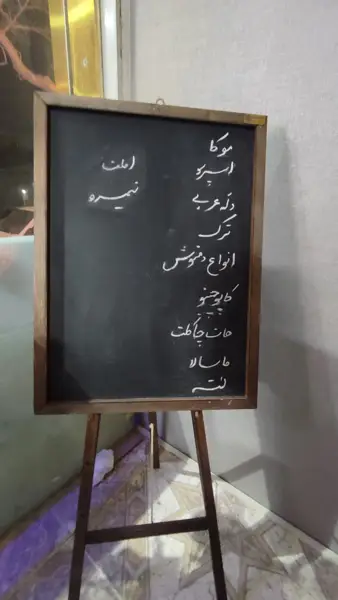 موکا
اسپرسو
دله عربی
ترک
انواع دمنوش
کاپوچینو
هات چاکلت
ماسالا
لته
املت
نیمرو